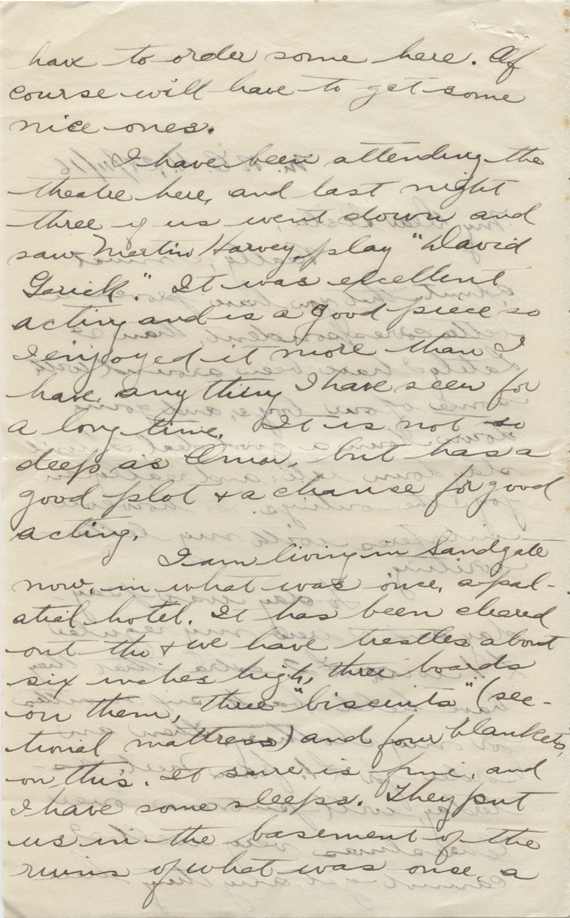 have to order some here. Of
course will have to get some
nice ones.
I have been attending the
theatre here, and last night
three of us went down and
saw Martin Harvey, play "David
Gerick." It was excellent
acting and is a good piece so
I enjoyed it more than I
have, anything I have seen for
a long time. It is not so
deep as Omar, but has a
good plot & a chance for good
acting.
I am living in Sandgate
now, in what was once, a pal-
atial hotel. It has been cleared
out tho & we have trestles about
six inches high, three boards
on them, three "biscuits" (sec-
tional mattress) and four blankets,
on this. It sure is fine, and
I have some sleeps. They put
us in the basement of the
ruins of what was once, a